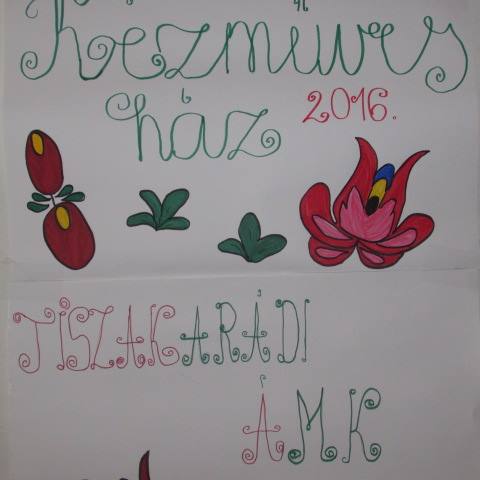 Kézműves
ház 2016.
TISZAKARÁDI
Á.M.K